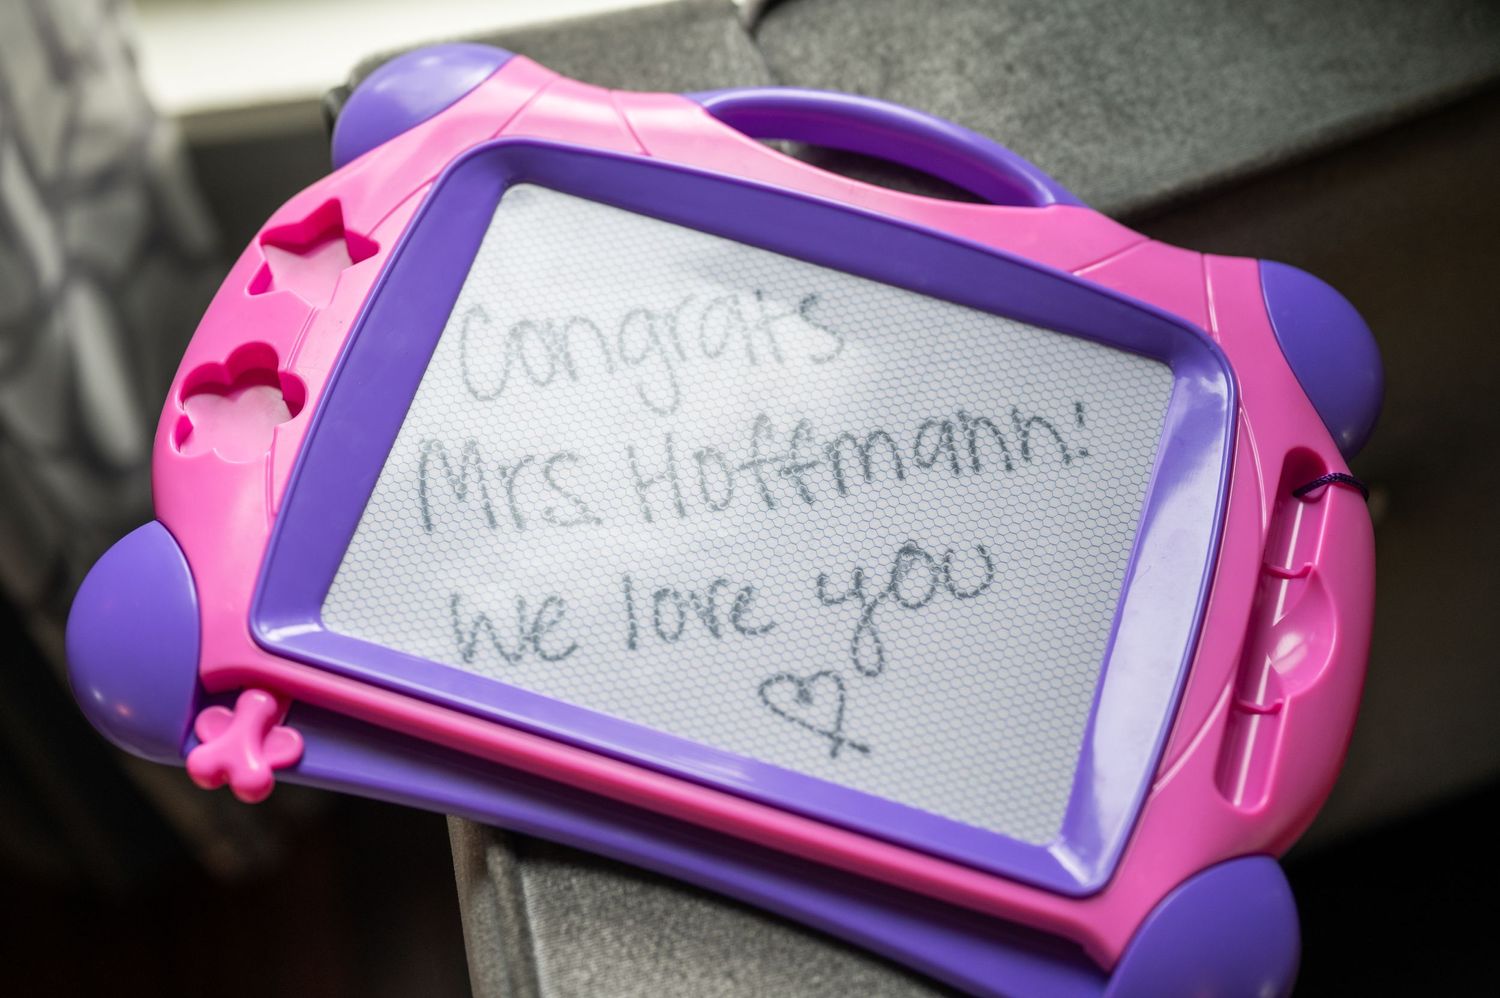 Congrats
Mrs. Hoffmann!
We love you